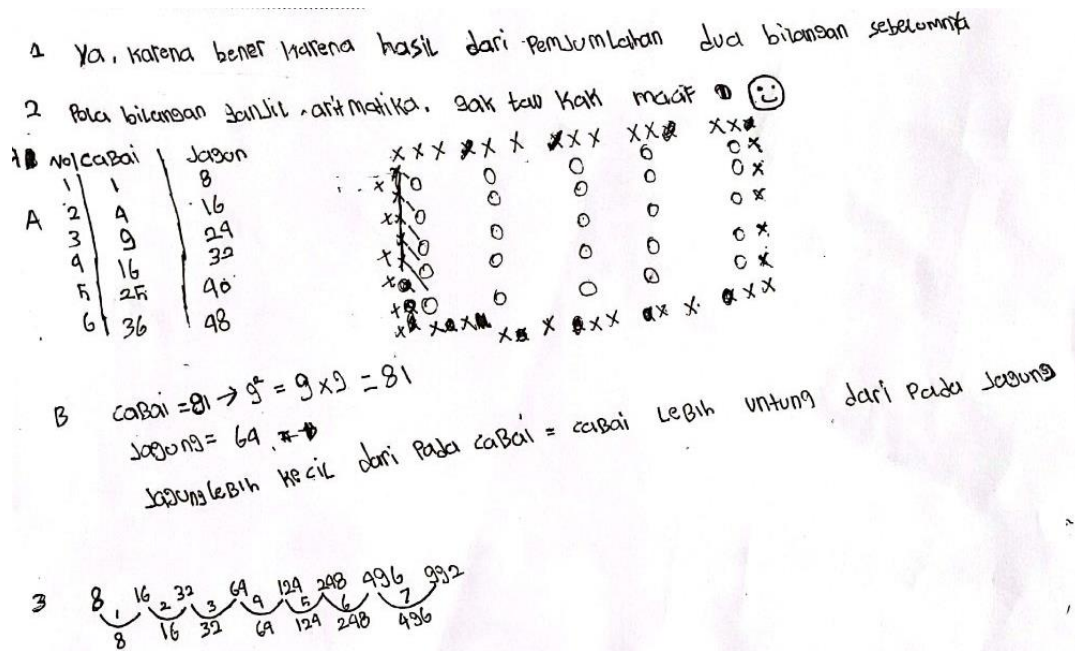 1 Ya, karena bener karena hasil dari Pemjumlahan dua bilangan sebelumnya
2 Pola bilangan ganjil, aritmatika. gak taw kak maaf
No Cabai Jagon
A
1 1 8
2 4 16
3 9 24
4 16 32
5 25 40
6 36 48
x x x x x x x x x x x x x x x
x o o o o o x
x o o o o o x
x o o o o o x
x o o o o o x
x o o o o o x
B CaBai = 81 → 9² = 9 x 9 = 81
Jagong = 64
Jagung leBih kecil dari Pada CaBai = caBai LeBih untung dari Pada Jagung
3 8 16 32 64 124 248 496 992
1 2 3 4 5 6 7
8 16 32 64 124 248 496